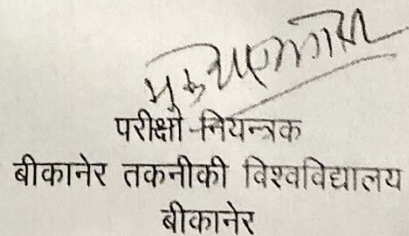 परीक्षा नियन्त्रक
बीकानेर तकनीकी विश्वविद्यालय
बीकानेर